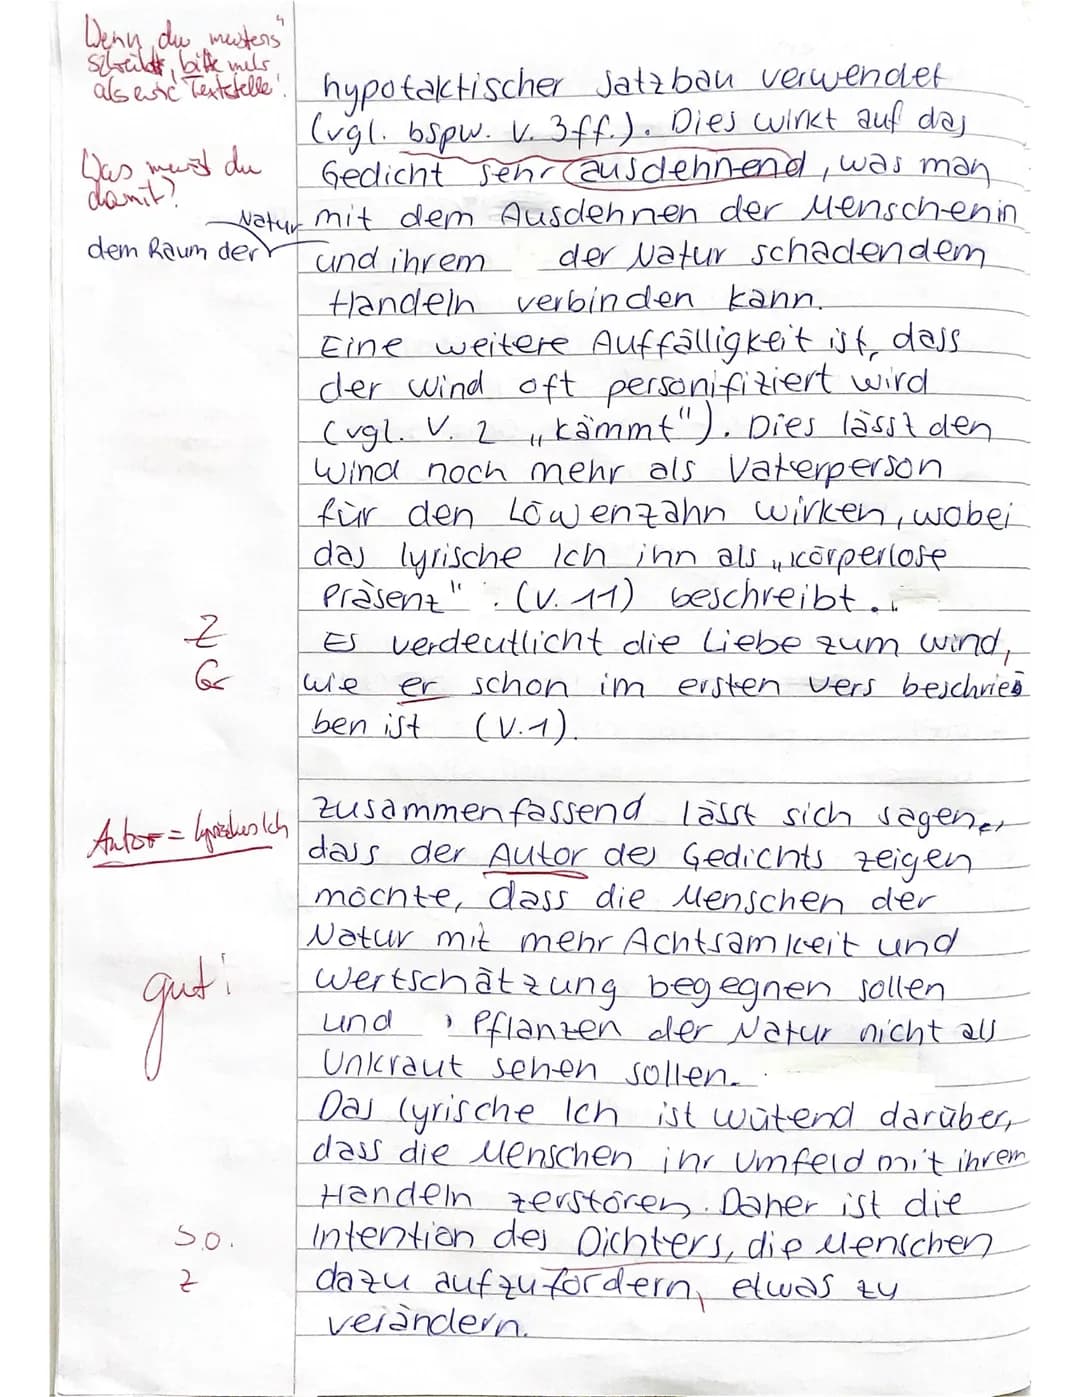 Wenn du „meistens"
schreibst, bitte mehr
als eine Textstelle!
hypotaktischer Satzbau verwendet
(vgl. bspw. V. 3ff.). Dies wirkt auf das
Was meinst du
damit?
Gedicht sehr ausdehnend, was man
mit dem Ausdehnen der Menschen in
Natur
dem Raum der
und ihrem der Natur schadendem
Handeln verbinden kann.
Eine weitere Auffälligkeit ist, dass
der Wind oft personifiziert wird
(vgl. V. 2 „kämmt"). Dies lässt den
Wind noch mehr als Vaterperson
für den Löwenzahn wirken, wobei
das lyrische Ich ihn als „körperlose
Präsenz" (V. 11) beschreibt.
Z
Es verdeutlicht die Liebe zum Wind,
Gr
wie er schon im ersten Vers beschrie
ben ist (V.1).
Zusammenfassend lässt sich sagen,
Autor = lyrisches Ich
dass der Autor des Gedichts zeigen
möchte, dass die Menschen der
Natur mit mehr Achtsamkeit und
gut!
Wertschätzung begegnen sollen
und Pflanzen der Natur nicht als
Unkraut sehen sollen.
Das lyrische Ich ist wütend darüber,
dass die Menschen ihr Umfeld mit ihrem
Handeln zerstören. Daher ist die
s.o.
Intention des Dichters, die Menschen
Z
dazu aufzufordern, etwas zu
verändern.